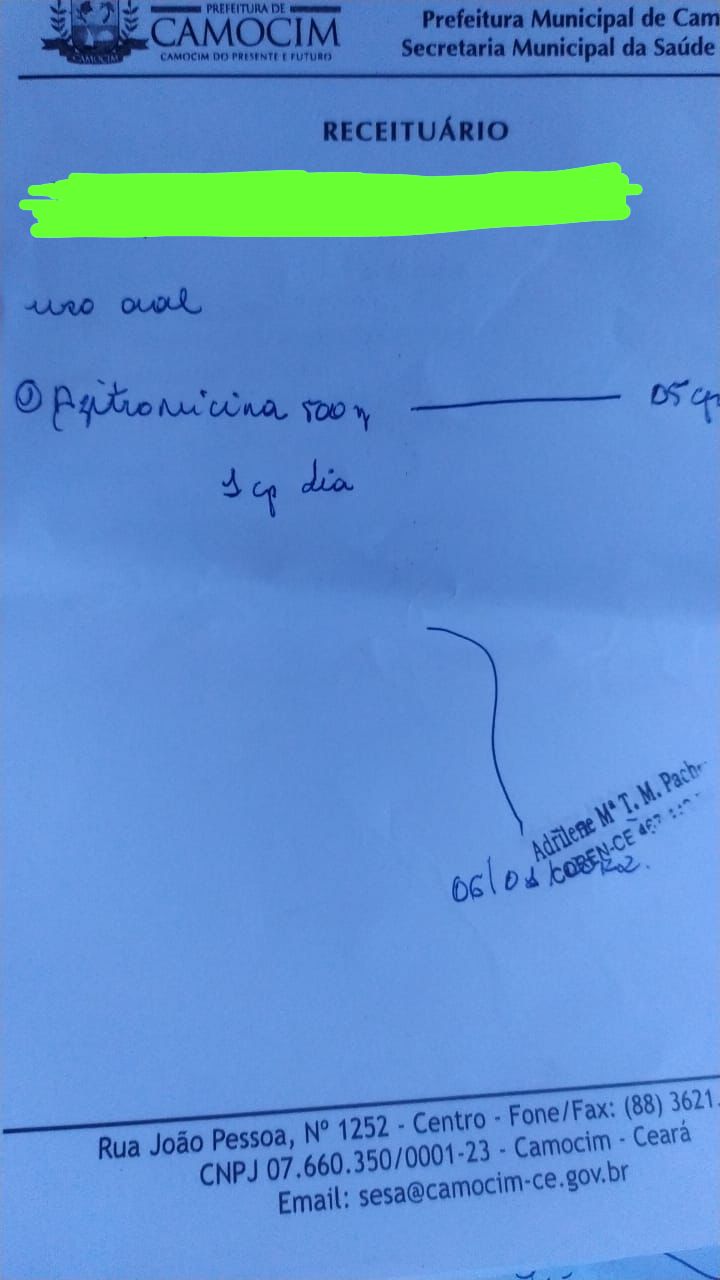 PREFEITURA DE
CAMOCIM
CAMOCIM DO PRESENTE E FUTURO
CAMOCIM
Prefeitura Municipal de Cam
Secretaria Municipal da Saúde
RECEITUÁRIO
uso oral
① Azitromicina 500 — 05 cp
1 cp dia
Adrilene Mª T. M. Pach
COREN-CE 467
06/01
Rua João Pessoa, Nº 1252 - Centro - Fone/Fax: (88) 3621.
CNPJ 07.660.350/0001-23 - Camocim - Ceará
Email: sesa@camocim-ce.gov.br